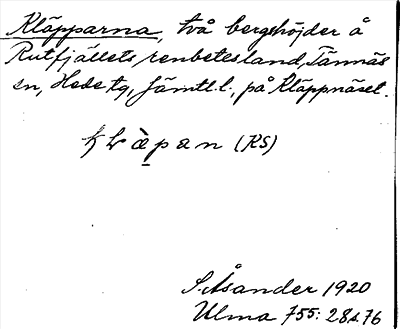 Kläpparna, två bergshöjder å
Rutfjällets renbetesland, Tännäs
sn, Hede tg, Jämtl. l., på Kläppnäset.
(KS)
S. Åsander 1920
Ulma 755: 28 s. 76